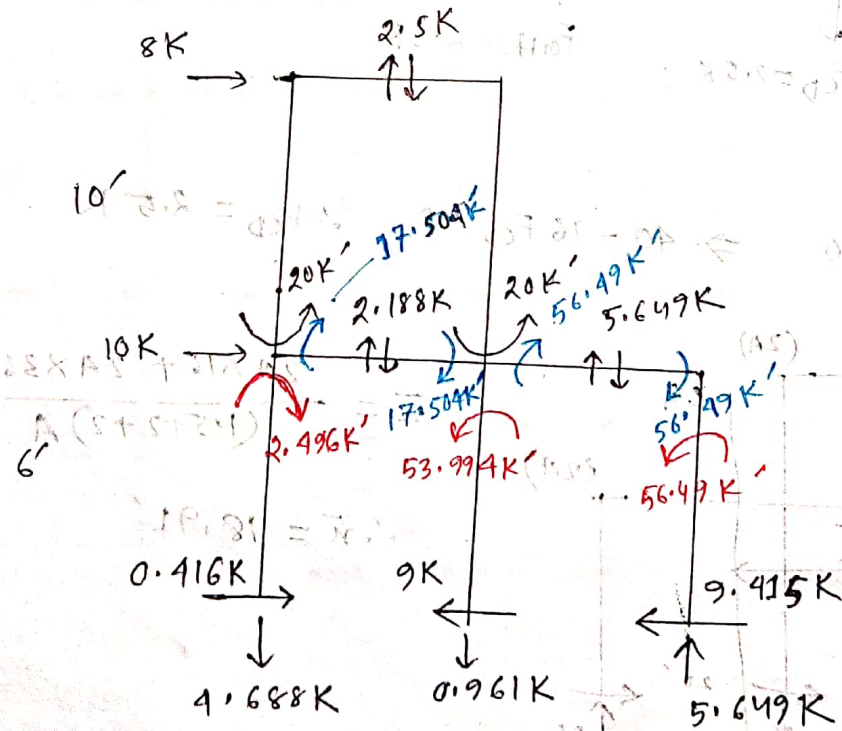 2.5K
8K
10′
17.504K′
20K′
2.188K
20K′
56.49K′
5.649K
10K
17.504K′
56.49K′
2.496K′
53.994K′
56.49K′
6′
0.416K
9K
9.415K
4.688K
0.961K
5.649K